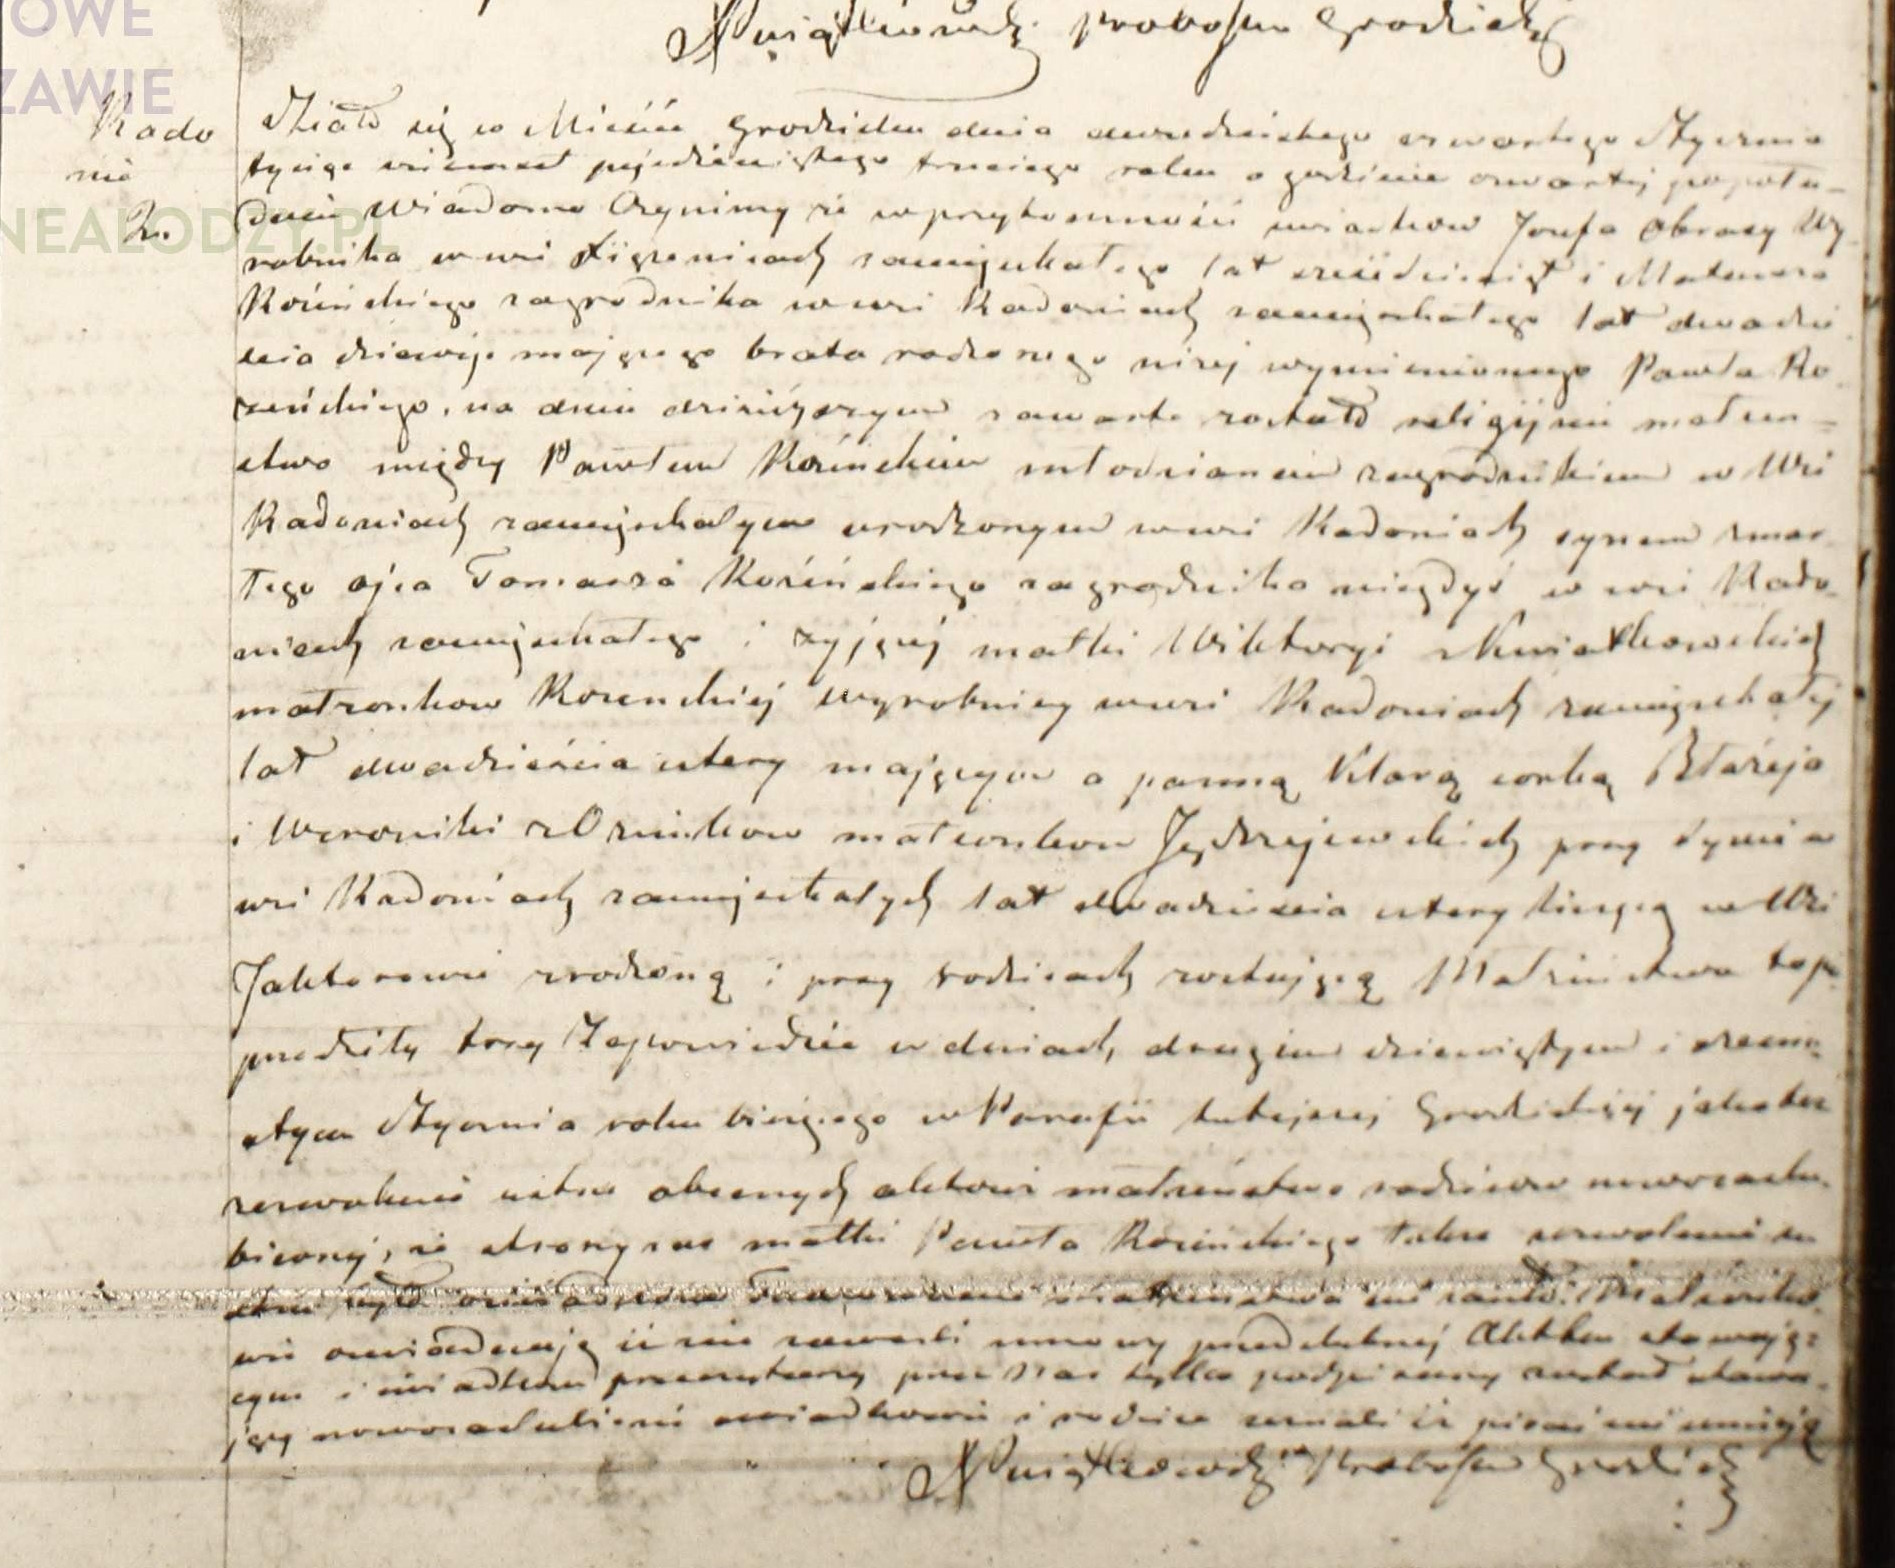 OWE
ZAWIE
NEALODZY.PL
Kwiatkowski proboszcz Grodziski
Rado
nie
2.
Działo się w Mieście Grodzisku dnia dwudziestego czwartego Stycznia
tysiąc ośmset pięćdziesiątego trzeciego roku o godzinie czwartej popołu-
dniu Wiadomo Czynimy że w przytomności świadków Józefa Obrazy Wy
robnika we wsi zamięszkałego lat sześćdziesiąt i Mateusza
Kozińskiego zagrodnika we wsi Radoniach zamięszkałego lat dwadzie
ścia dziewięć mającego brata rodzonego niżej wymienionego Pawła Ko
zeńskiego, na dniu dzisiejszym zawarte zostało religijnie małżeń-
stwo między Pawłem Kozińskim młodzianem zagrodnikiem w Wsi
Radoniach zamięszkałym urodzonym w wsi Radoniach synem zmar
łego ojca Tomasza Kozińskiego zagrodnika niegdyś w wsi Rado
niach zamięszkałego i żyjącej matki Wiktoryi z Kwiatkowskich
małżonków Kozenskiej wyrobnicy w wsi Radoniach zamięszkałej
lat dwadzieścia cztery mającym a panną Klarą córką Błażeja
i Weroniki z małżonków Jędrzejewskich przy w
wsi Radoniach zamięszkałych lat dwadzieścia cztery liczącą w Wsi
Jaktorowie zrodzoną i przy rodzicach zostającą Małżeństwo to po
przedziły trzy Zapowiedzie w dniach drugim dziewiątym i szesna
stym Stycznia roku bieżącego w Parafii tutejszej Grodziskiej jakoteż
zezwolenie ustne obecnych aktowi małżeństwa rodziców nowozaślu
bionej, ze strony zaś matki Pawła Kozińskiego także zezwolenie u
stne było oświadczone Tamowanie małżeństwa nie zaszło. Małżonko
wie oświadczają iż nie zawarli umowy przedślubnej Akt ten stawają
cym i świadkom przeczytany przez Nas tylko podpisany został stawa
jący nowozaślubieni świadkowie i rodzice zeznali iż pisać nie umieją
Kwiatkowski Proboszcz Grodziski